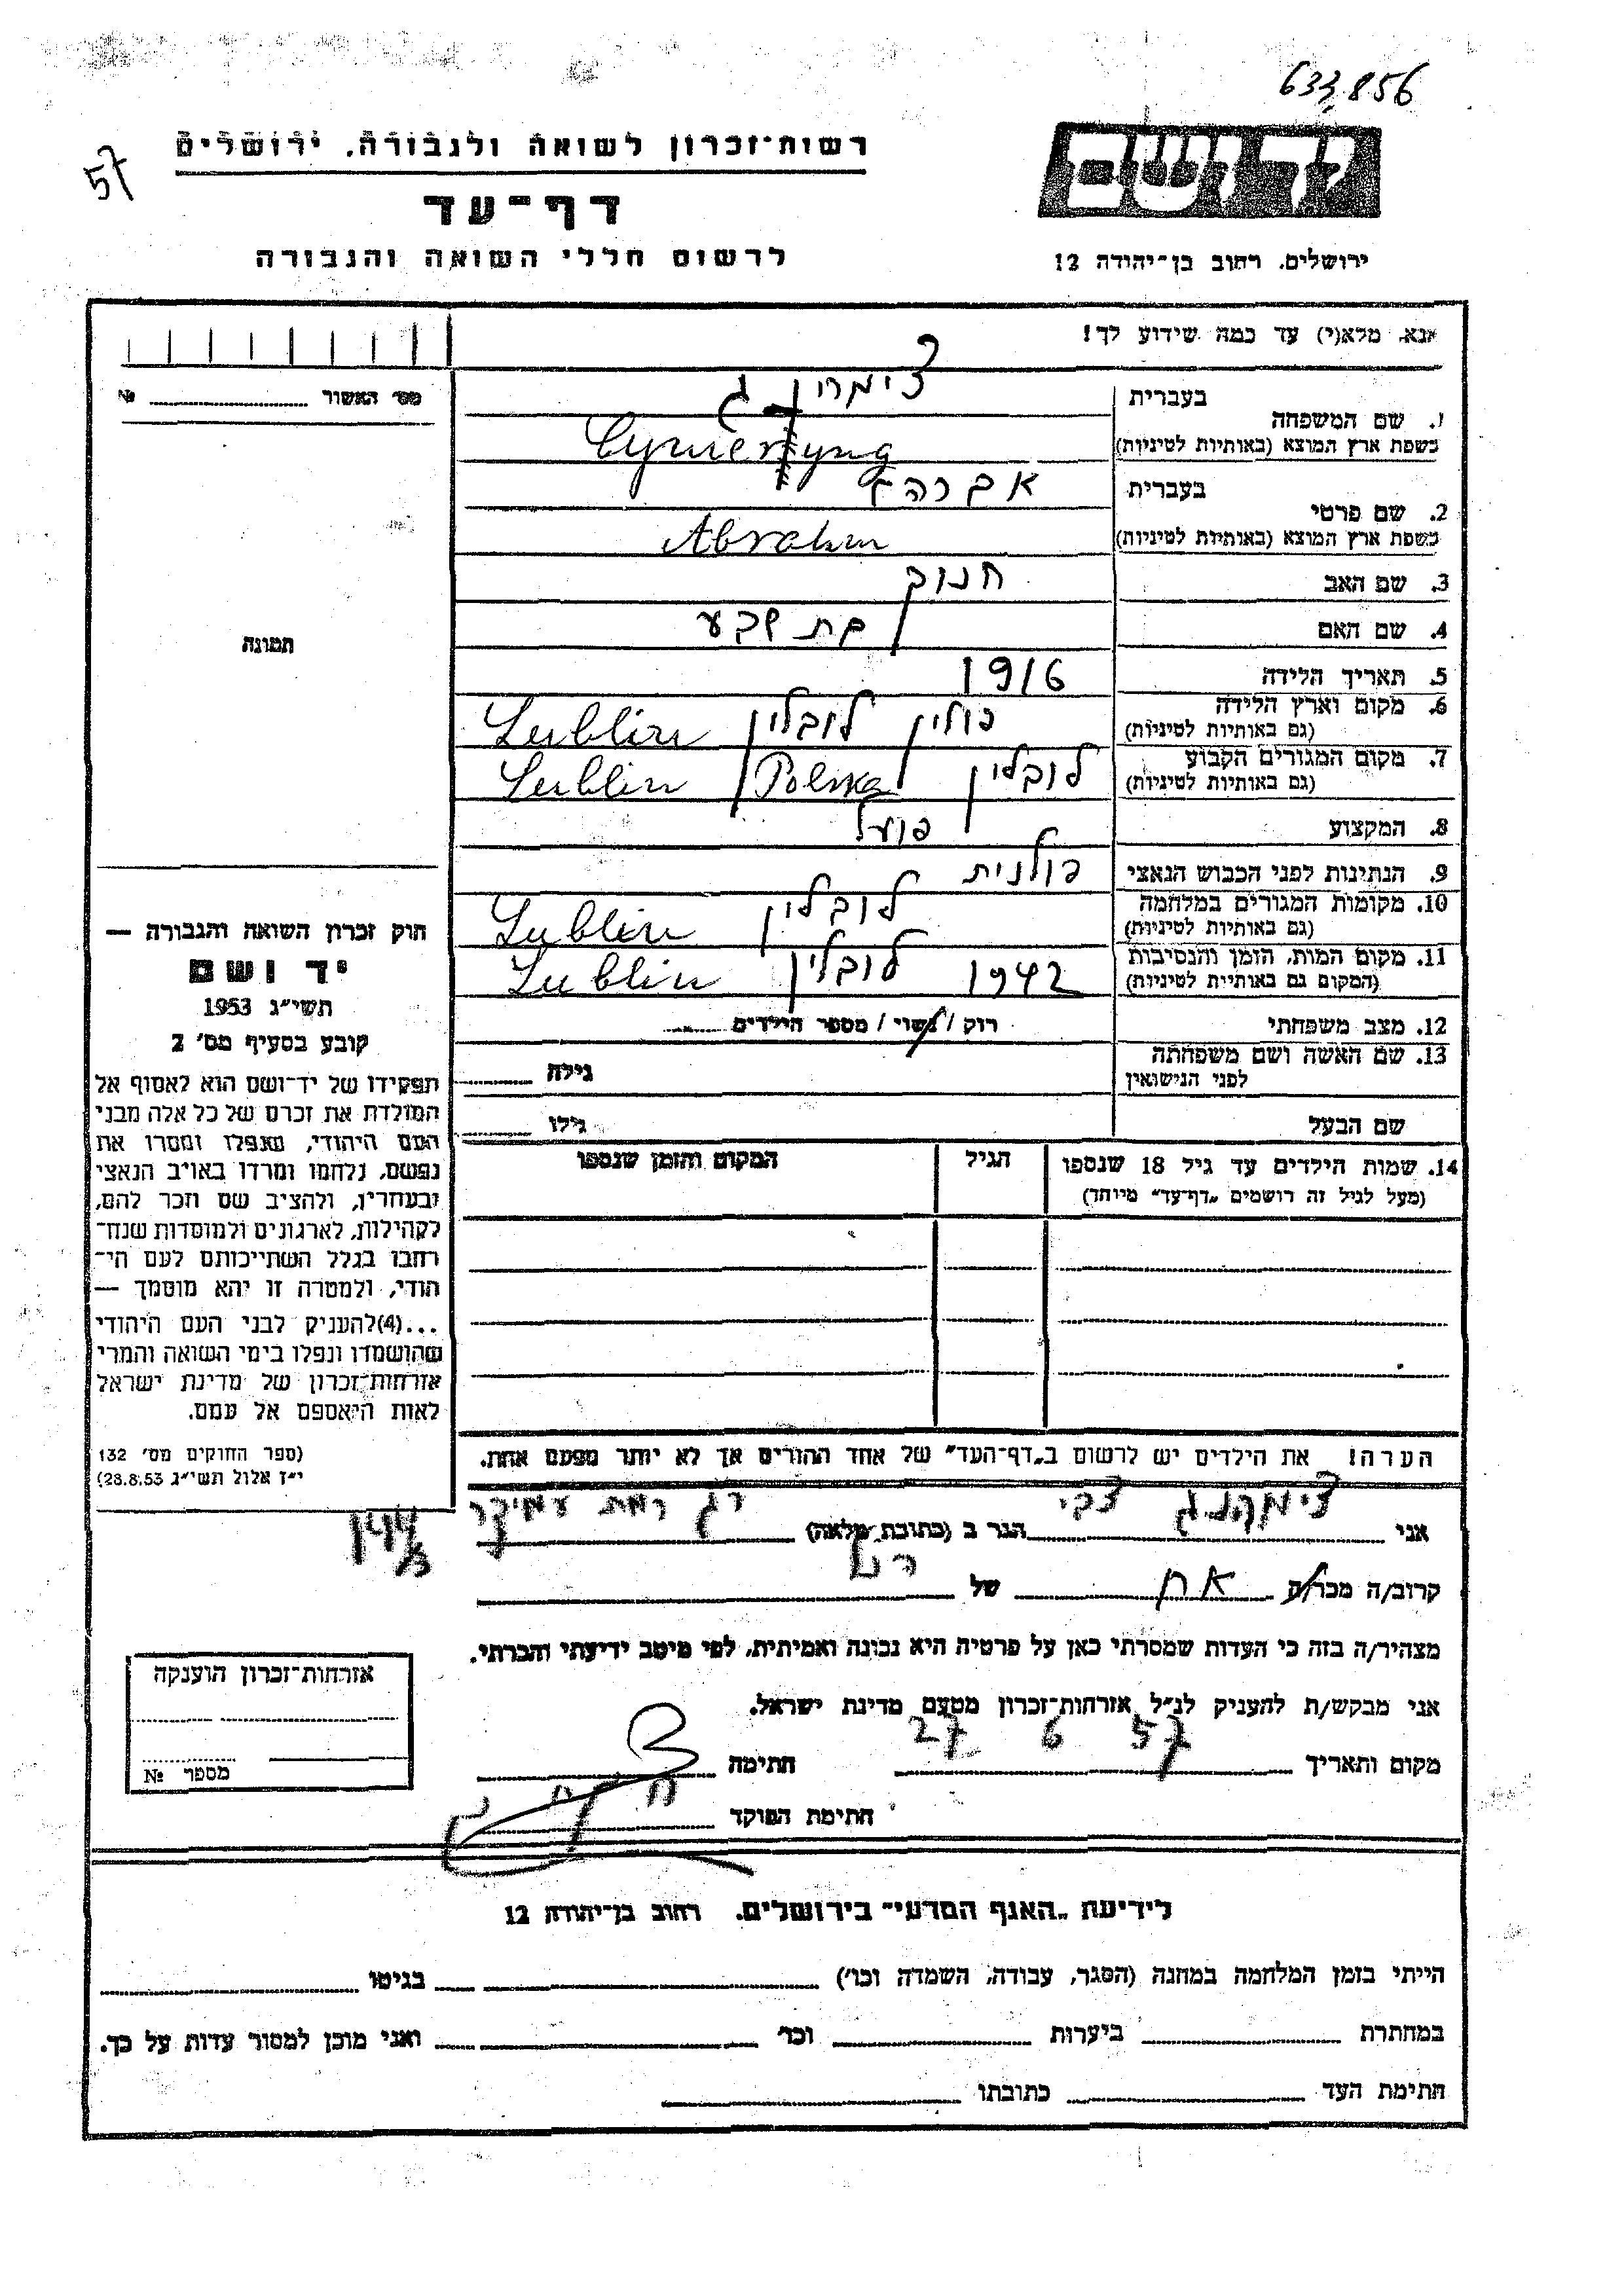 633,856
57
רשות־זכרון לשואה ולגבורה, ירושלים
דף־עד
לרשום חללי השואה והגבורה
יד ושם
ירושלים, רחוב בן־יהודה 12
אנא, מלא(י) עד כמה שידוע לך!
מס׳ האשור № 
1. שם המשפחה
בעברית
כשפת ארץ המוצא (באותיות לטיניות)
2. שם פרטי
בעברית אברהם
כשפת ארץ המוצא (באותיות לטיניות) Abraham
3. שם האב חנוך
4. שם האם בת שבע
5. תאריך הלידה 1916
6. מקום וארץ הלידה פולין לובלין Lublin
(גם באותיות לטיניות)
7. מקום המגורים הקבוע לובלין Polska Lublin
(גם באותיות לטיניות)
8. המקצוע פועל
9. הנתינות לפני הכבוש הנאצי פולנית
10. מקומות המגורים במלחמה לובלין Lublin
(גם באותיות לטיניות)
11. מקום המות, הזמן והנסיבות 1942 לובלין Lublin
(המקום גם באותיות לטיניות)
12. מצב משפחתי רוק / נשוי / מספר הילדים
13. שם האשה ושם משפחתה
לפני הנישואין
גילה
שם הבעל
גילו
14. שמות הילדים עד גיל 18 שנספו
(מעל לגיל זה רושמים „דף־עד״ מיוחד)
הגיל
המקום והזמן שנספו
הערה! את הילדים יש לרשום ב„דף־העד״ של אחד ההורים אך לא יותר מפעם אחת.
תמונה
חוק זכרון השואה והגבורה —
יד ושם
תשי״ג 1953
קובע בסעיף מס׳ 2
תפקידו של יד־ושם הוא לאסוף אל
המולדת את זכרם של כל אלה מבני
העם היהודי, שנפלו ומסרו את
נפשם, נלחמו ומרדו באויב הנאצי
ובעוזריו, ולהציב שם וזכר להם,
לקהילות, לארגונים ולמוסדות שנח־
רבו בגלל השתייכותם לעם הי־
הודי, ולמטרה זו יהא מוסמך —
...(4)להעניק לבני העם היהודי
שהושמדו ונפלו בימי השואה והמרי
אזרחות־זכרון של מדינת ישראל
לאות היאספם אל עמם.
(ספר החוקים מס׳ 132
י״ז אלול תשי״ג 28.8.53)
אני צבי הגר ב (כתובת מלאה) רג רמת עמידר
קרוב/ה מכר/ה אח של
מצהיר/ה בזה כי העדות שמסרתי כאן על פרטיה היא נכונה ואמיתית, לפי מיטב ידיעתי והכרתי.
אני מבקש/ת להעניק לנ״ל אזרחות־זכרון מטעם מדינת ישראל.
מקום ותאריך 27 6 57 חתימה
חתימת הפוקד
אזרחות־זכרון הוענקה
מספר №
לידיעת „האגף המדעי״ בירושלים, רחוב בן־יהודה 12
הייתי בזמן המלחמה במחנה (הסגר, עבודה, השמדה וכו׳) בגיטו
במחתרת ביערות וכו׳ ואני מוכן למסור עדות על כך.
חתימת העד כתובתו